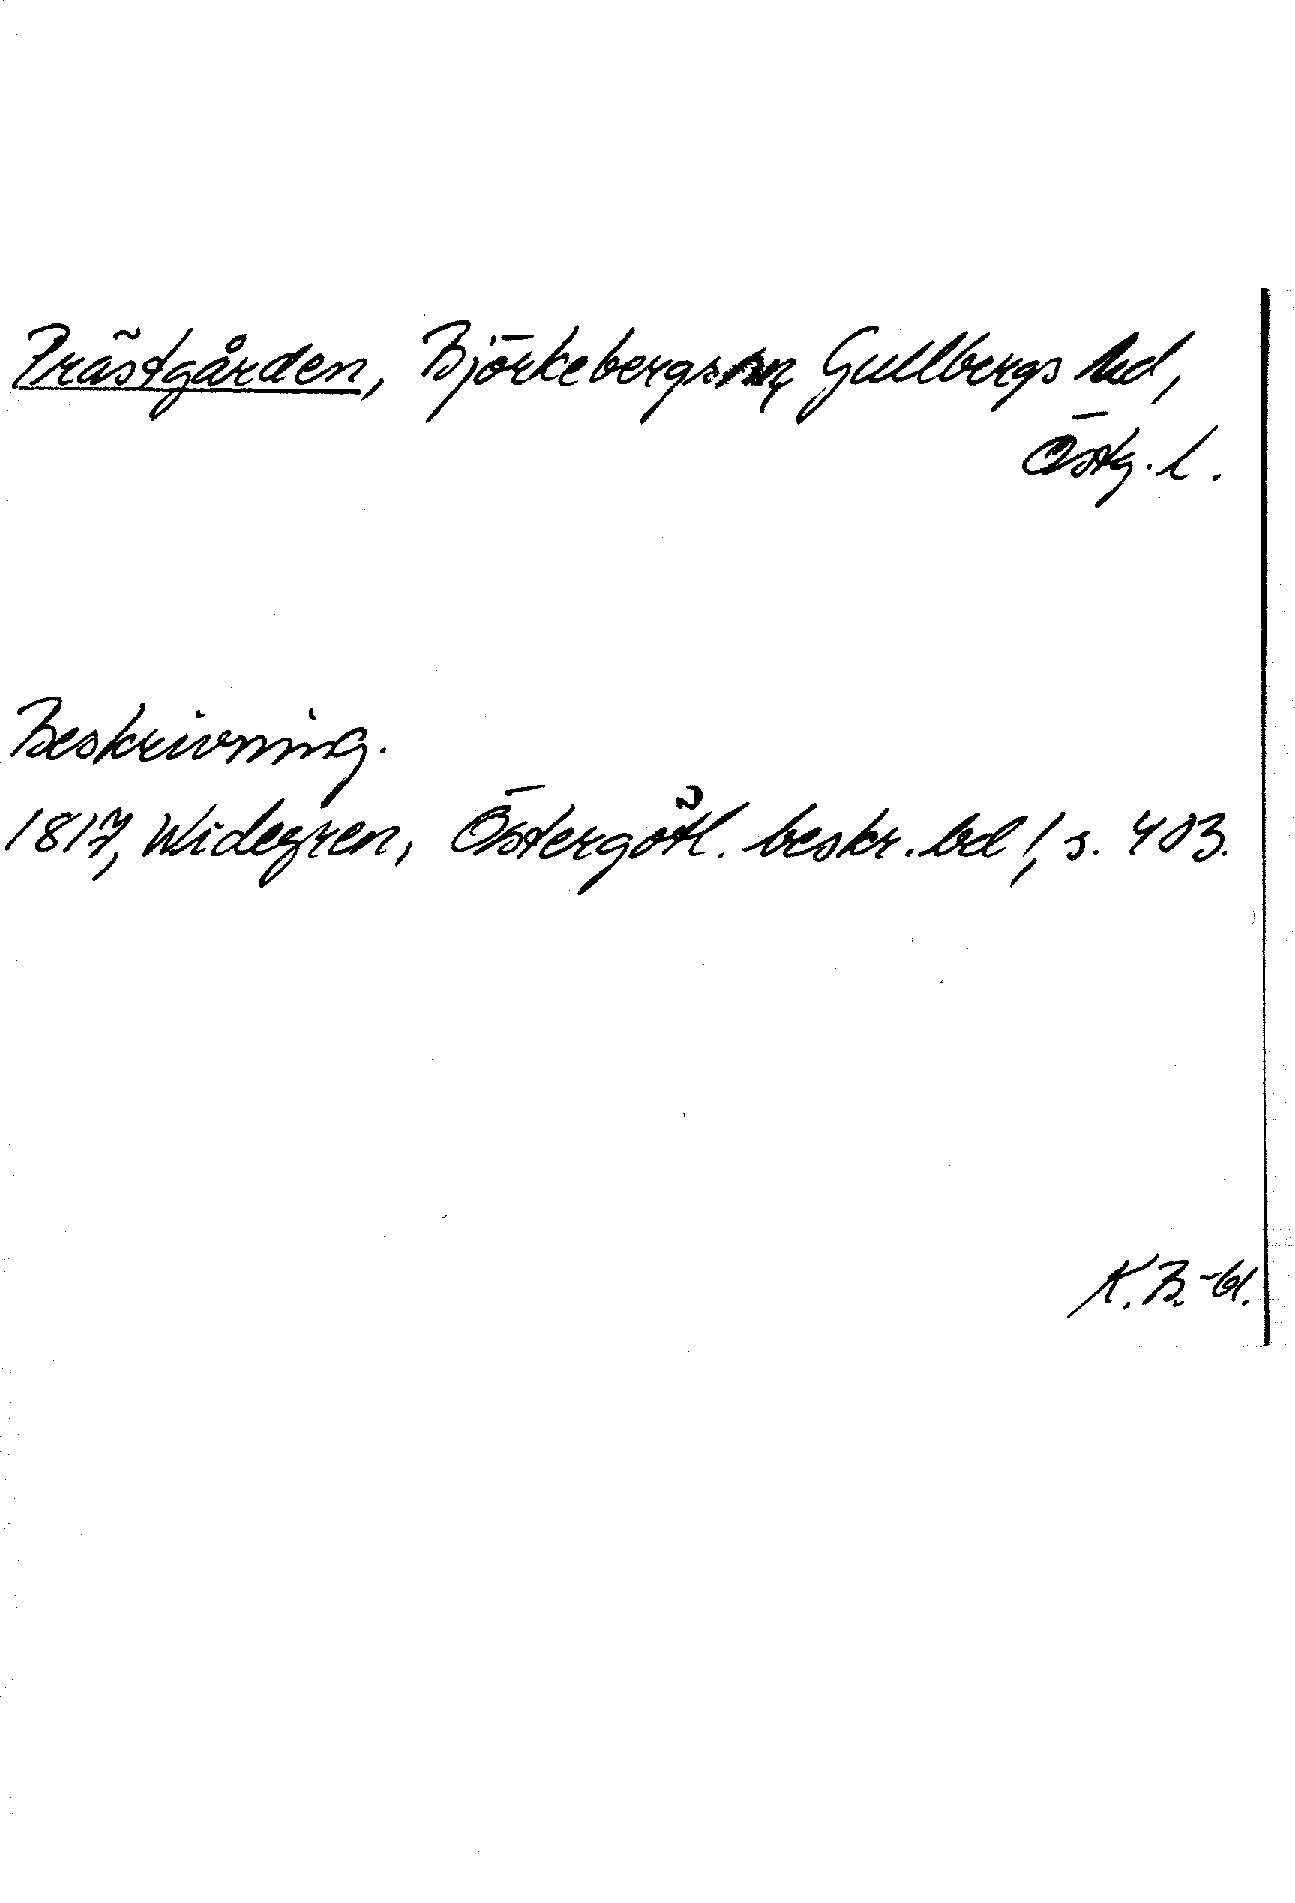 Prästgården, Björkebergs sn, Gullbergs hd,
Östg. l.
Beskrivning.
1817, Widegren, Östergötl. beskr. bd 1, s. 403.
K. B.-bl.